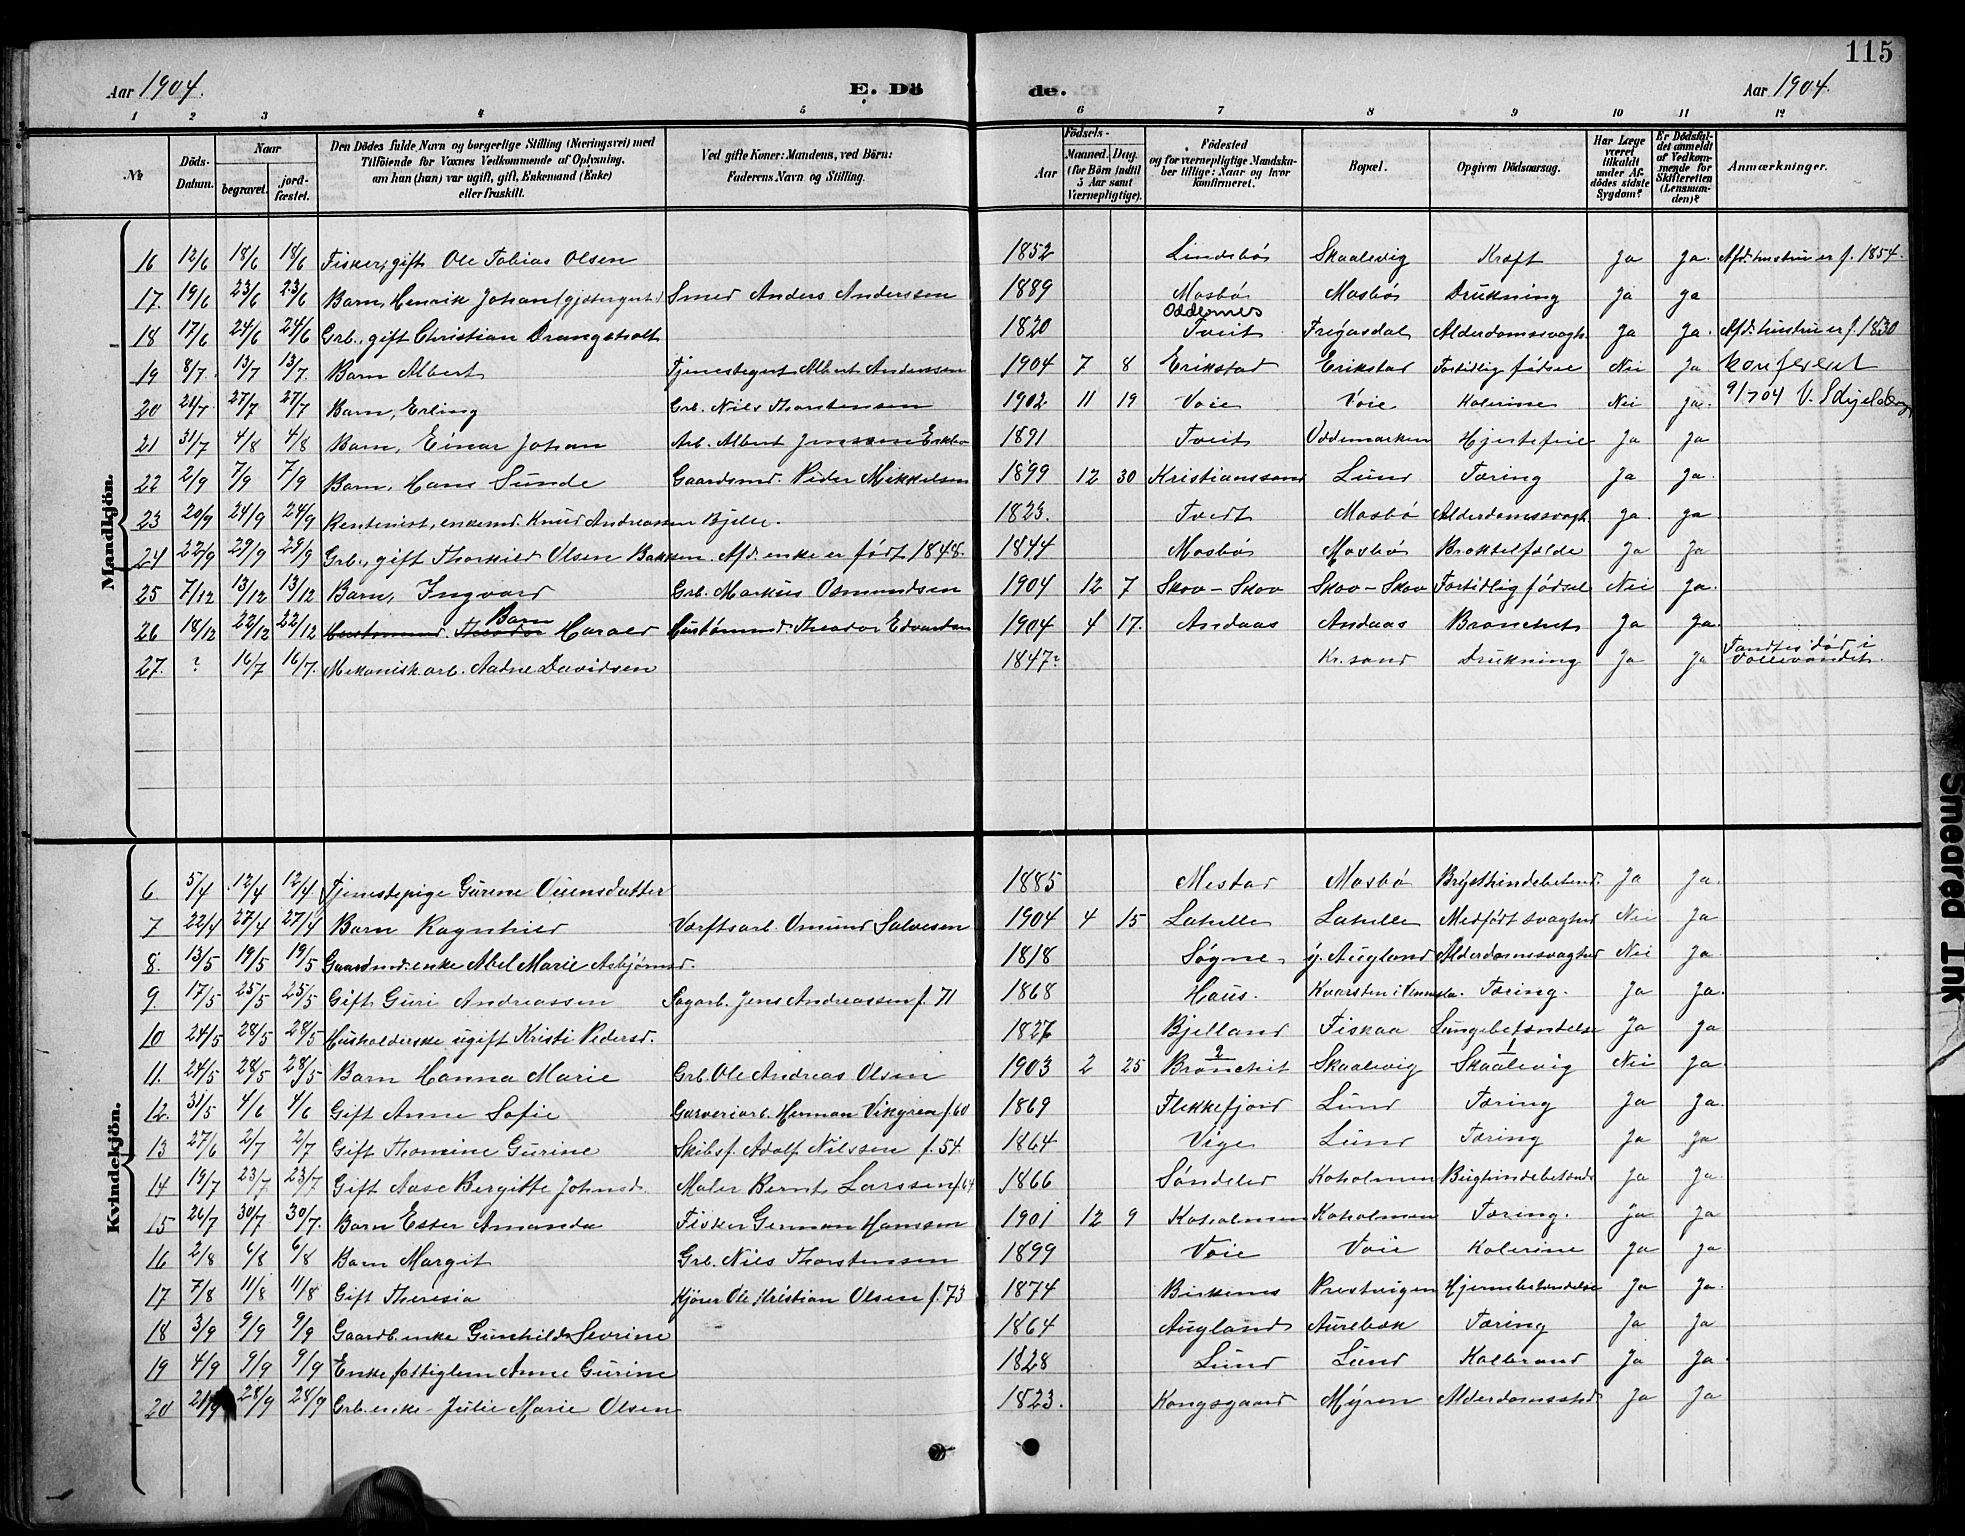 115
Aar 1904. E. Dö de. Aar 1904.
1 2 3 4 5 6 7 8 9 10 11 12
№ Döds-Datum. Naar begravet. jordfæstet. Den Dödes fulde Navn og borgerlige Stilling (Næringsvei) med Tilföiende for Voxnes Vedkommende af Oplysning, om han (hun) var ugift, gift, Enkemand (Enke) eller fraskilt. Ved gifte Koner: Mandens, ved Börn: Faderens Navn og Stilling. Födsels- Aar Maaned. Dag. (for Börn indtil 5 Aar samt Værnepligtige). Födested og for værnepligtige Mandskaber tillige: Naar og hvor konfirmeret. Bopæl. Opgiven Dödsaarsag. Har Læge været tilkaldt under Afdödes sidste Sygdom? Er Dödsfaldet anmeldt af Vedkommende for Skifteretten (Lensmanden)? Anmærkninger.
Mandkjön.
16 12/6 18/6 18/6 Fisker, gift Ole Tobias Olsen 1852 Lindebø Skaalevig Kræft Ja Ja. Afd. hustru er f. 1854.
17. 19/6 23/6 23/6 Barn, Henrik Johan (gjætergut) Smed Anders Anderssen 1889 Mosbø Mosbø Drukning Ja Ja
18 17/6 24/6 24/6 Grb., gift Christian Drangsholt 1820 Oddernes Tveit Fregasdal Alderdomssvagh. Ja Ja. Afd. hustru er f. 1830
19 8/7. 13/7 13/7. Barn Albert Tjenestegut Albert Anderssen 1904 7 8 Erikstad Erikstad Fortidlig fødsel Nei Ja Konfereret
20 21/7. 27/7 27/7 Barn, Erling Grb. Nils Thorstensen 1902 11 19 Voie Voie Kolerine Nei Ja. 9/7 04 V. Schjelderup
21 31/7 4/8 4/8 Barn, Einar Johan Arb. Albert Jenssen 1891 Tveit Uddemarken Hjertefeil Ja Ja
22 2/9 7/9 7/9 Barn, Hans Sunde Gaardmd. Peder Mikkelsen 1899 12 30 Kristianssand Lund Tæring Ja Ja.
23 20/9 24/9 24/9 Rentenist, enkemd. Knud Andreassen Bjelle. 1823. Tvedt Mosbø Alderdomssvagh. Ja. Ja.
24 22/9 29/9 29/9 Grb., gift Thorkild Olsen Bakken. Afd. enke er født 1848. 1844 Mosbø Mosbø Ja Ja
25 7/12 13/12 13/12 Barn, Ingvard Grb. Markus Osmundsen 1904 12 7 Skov-Skov Skov-Skov Fortidlig fødsel Nei Ja.
26 18/12 22/12 22/12 Husmand Theodor Barn Harald Husmand Theodor Edvardsen 1904 4 17. Andaas Andaas Bronchit Ja Ja.
27. ? 16/7 16/7. Mekanisk arb. Aadne Davidsen 1847? Kr.sand Drukning Ja Ja Fandtes død i Vollevandet.
Kvindekjön.
6. 5/4 12/4 12/4 Tjenestepige Gurine Viensdatter 1885 Mestad Mosbø Brysthindebetend. Ja Ja.
7 22/4 27/4 27/4 Barn Ragnhild Værftsarb. Omund Salvesen 1904 4 15 Lahelle Lahelle Medfødt svaghed Nei Ja
8. 13/5 19/5 19/5 Gaardmd. enke Abel Marie Asbjørnsd. 1818 Søgne y. Augland Alderdomssvaghed Nei Ja
9 17/5 25/5 25/5 Gift Guri Andreassen Sagarb. Jens Andreassen f. 71 1868 Haus. Kvarsten i Vennesla. Tæring. Ja Ja.
10 24/5 28/5 28/5 Husholderske ugift Kristi Pedersd. 1827 Bjelland Fiskaa Lungebetændelse Ja Ja
11. 24/5 28/5 28/5 Barn Hanna Marie Grb. Ole Andreas Olsen 1903 2 25 2 Bronchit Skaalevig 1 Skaalevig Nei Ja
12. 31/5 4/6 4/6 Gift Anne Sofie Garveriarb. Herman Vikgren f. 60 1869 Flekkefjord Lund Tæring Ja Ja.
13 27/6 2/7 2/7 Gift Thomine Gurine Skibsf. Adolf Nilssen f. 54 1864 Vige Lund Tæring Ja Ja
14 19/7 23/7 23/7 Gift Aase Bergitte Johnsd. Maler Bernt Larssen f 64 1866 Søndeled Koholmen Ja Ja
15 26/7 30/7 30/7. Barn Ester Amanda Fisker German Hanssen 1901 12 9 Koholmen Koholmen Tæring. Ja Ja
16 2/8 6/8 6/8 Barn Margit Grb. Nils Thorstensen 1899 Voie Voie Kolerine Ja Ja
17 7/8 11/8 11/8 Gift Theresia Kjører Ole Kristian Olsen f. 73 1874 Birkenes Prestvigen Hjernebetændelse Ja Ja.
18 3/9 9/9 9/9 Gaardb. enke Gunhild Sevrine 1864 Augland Aurebæk Tæring Ja Ja
19 4/9 9/9 9/9 Enke fattiglem Anne Gurine 1828 Lund Lund Kolbrand Ja Ja.
20 21/9 28/9 28/9 Grb. enke Julie Marie Olsen 1823. Kongsgaard Myren Ja Ja
Smeared Ink